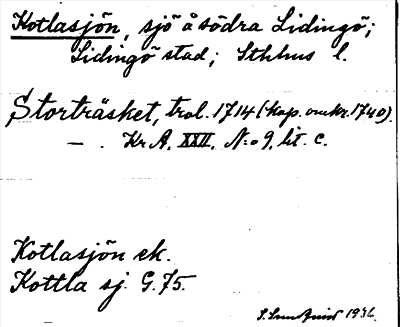 Kotlasjön, sjö å södra Lidingö;
Lidingö stad; Sthlms l.
Storträsket, trol. 1714 (kap. omkr. 1740).
— . Kr A. XXII. N:o 9, lit. C.
Kotlasjön ek.
Kottla sj. G. 75.
1936.